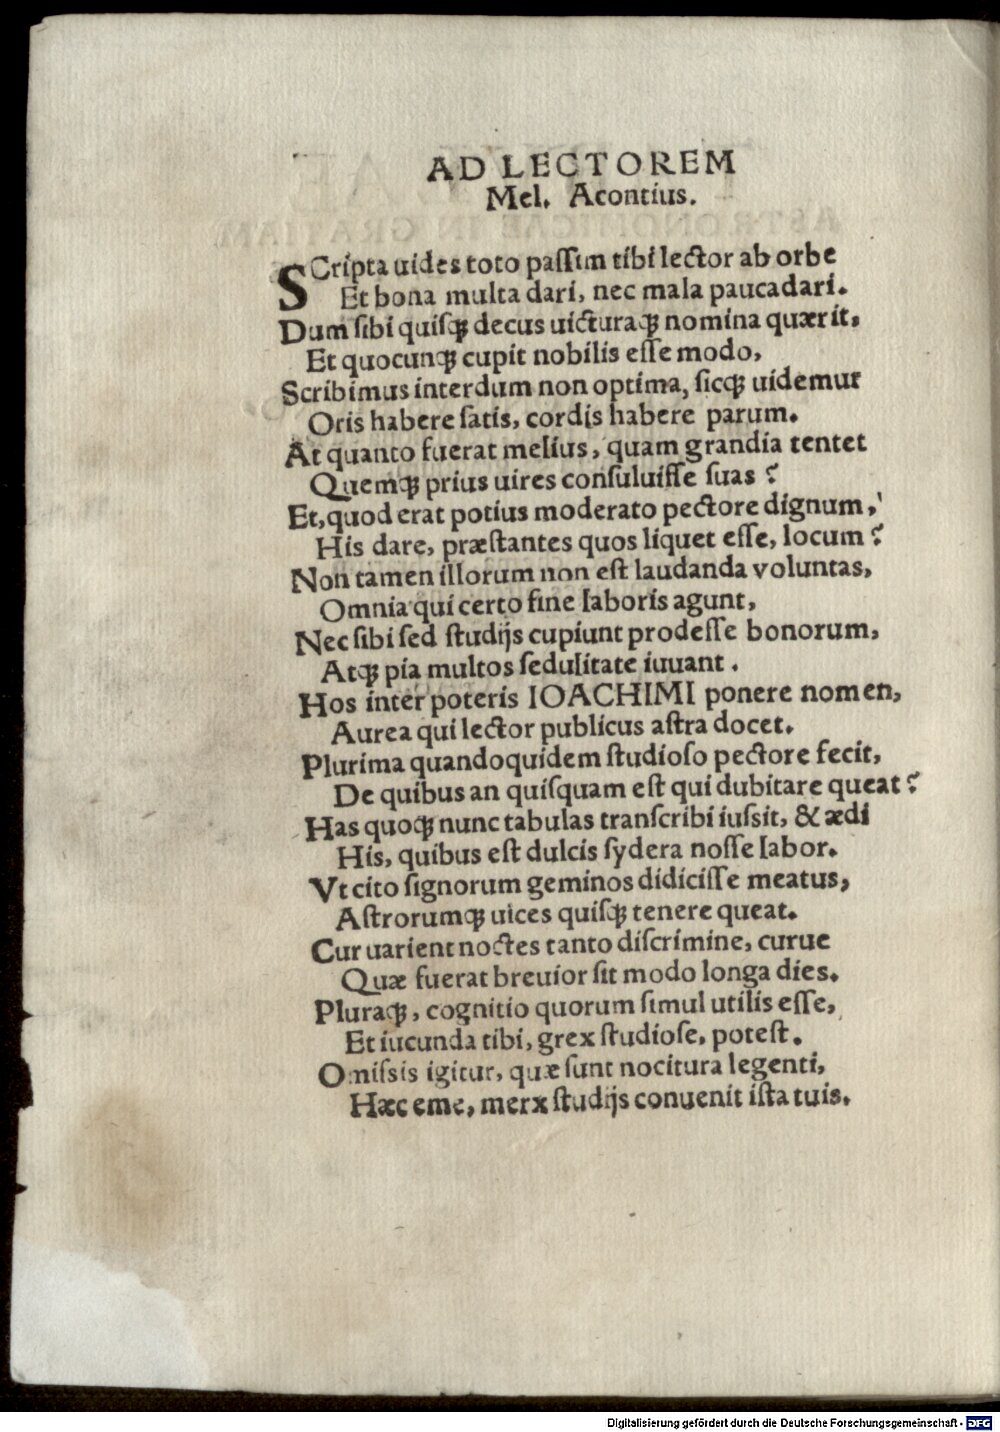 AD LECTOREM
Mel. Acontius.
SCripta uides toto passim tibi lector ab orbe
Et bona multa dari, nec mala pauca dari.
Dum sibi quisqꝫ decus uicturaqꝫ nomina quærit,
Et quocunqꝫ cupit nobilis esse modo,
Scribimus interdum non optima, sicqꝫ uidemur
Oris habere satis, cordis habere parum.
At quanto fuerat melius, quam grandia tentet
Quemqꝫ prius uires consuluisse suas?
Et, quod erat potius moderato pectore dignum,
His dare, præstantes quos liquet esse, locum?
Non tamen illorum non est laudanda voluntas,
Omnia qui certo fine laboris agunt,
Nec sibi sed studijs cupiunt prodesse bonorum,
Atqꝫ pia multos sedulitate iuuant.
Hos inter poteris IOACHIMI ponere nomen,
Aurea qui lector publicus astra docet.
Plurima quandoquidem studioso pectore fecit,
De quibus an quisquam est qui dubitare queat?
Has quoqꝫ nunc tabulas transcribi iussit, & ædi
His, quibus est dulcis sydera nosse labor.
Vt cito signorum geminos didicisse meatus,
Astrorumqꝫ uices quisqꝫ tenere queat.
Cur uarient noctes tanto discrimine, curue
Quæ fuerat breuior sit modo longa dies.
Pluraqꝫ, cognitio quorum simul utilis esse,
Et iucunda tibi, grex studiose, potest.
Omissis igitur, quæ sunt nocitura legenti,
Hæc eme, merx studijs conuenit ista tuis.
Digitalisierung gefördert durch die Deutsche Forschungsgemeinschaft - DFG